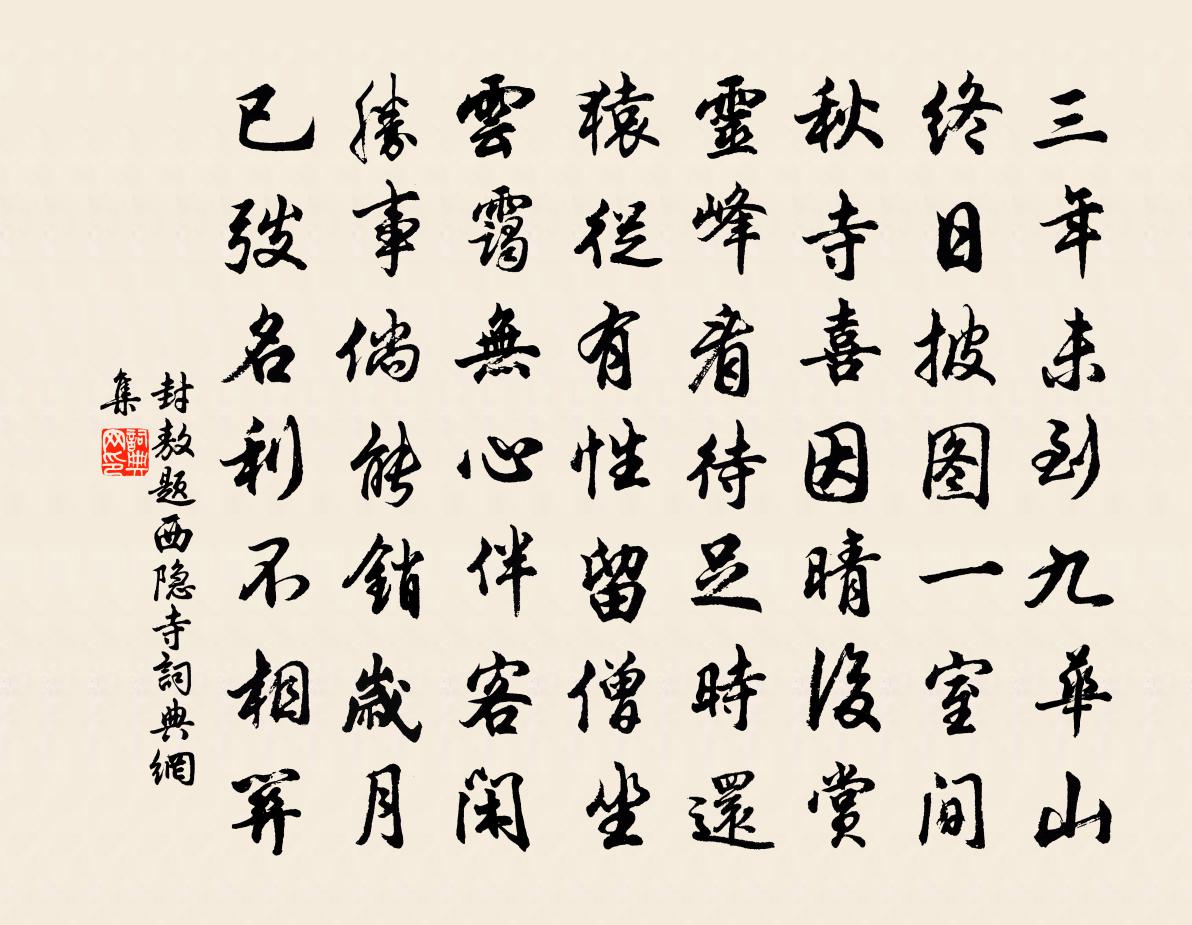 三年未到九華山
終日披图一室间
秋寺喜因晴後賞
靈峰看待足時還
猿從有性留僧坐
雲靄無心伴客閑
勝事倘能銷歲月
已拚名利不相關
封敖题西隐寺詞典網
集
詞典网印